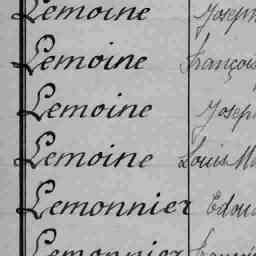 Lemoine Joseph
Lemoine François
Lemoine Joseph
Lemoine Louis M
Lemonnier Edou
Lemonnier François